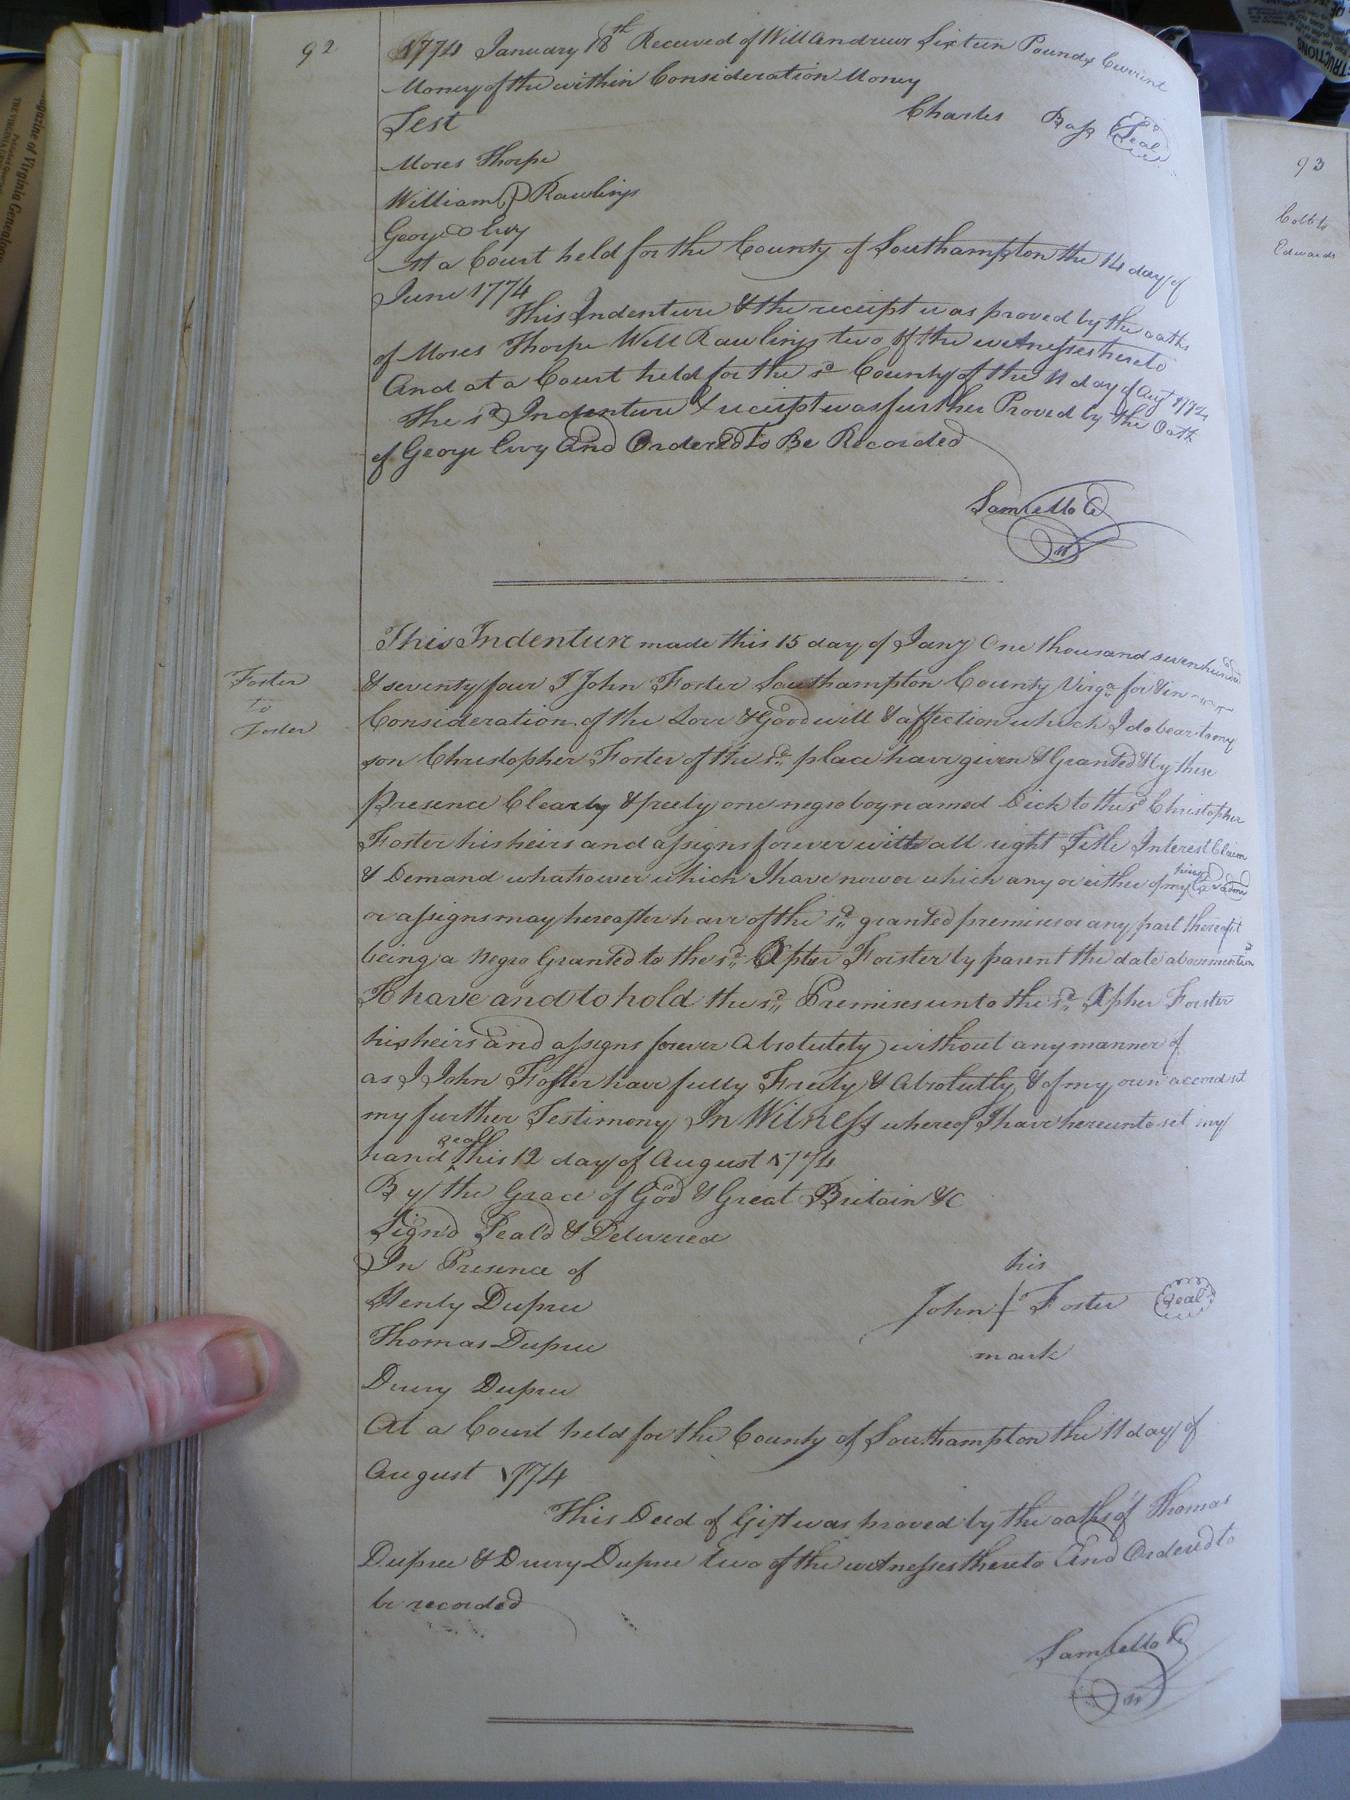 92
1774 January 18th Received of Will Andrews Sixteen Pounds Current
Money of the within Consideration Money
Charles Bass Seal
Test
Moses Thorpe
William Rawlings
George Ivy
At a Court held for the County of Southampton the 14 day of
June 1774
This Indenture & the receipt was proved by the oaths
of Moses Thorpe Will Rawlings two of the witnesses hereto
And at a Court held for the sd County of the 11 day of Augt 1774
The sd Indenture & receipt was further Proved by the Oath
of George Ivy And Ordered To Be Recorded
This Indenture made this 15 day of Jany One thousand seven hundred
Foster
to
Foster
& seventy four I John Foster Southampton County Virga for & in
Consideration of the Love & Good will & affection which I do bear to my
son Christopher Foster of the sd place have given & Granted & by these
Presence Clearly & freely one negro boy named Dick to the sd Christopher
Foster his heirs and assigns forever with all right Title Interest Claim
& Demand whatsoever which I have now or which any or either of my heirs Exrs admrs
or assigns may hereafter have of the sd granted premises or any part thereof it
being a Negro Granted to the sd Xpher Forster by parent the date abovemention
To have and to hold the sd Premises unto the sd Xpher Forster
his heirs and assigns forever Absolutely without any manner of
as I John Foster have fully Freely & Absolutly & of my own accord set
my further Testimony In Witness whereof I have hereunto set my
hand & seal this 12 day of August 1774
By the Grace of God & Great Britain &C
Signd Seald & Delivered
In Presence of
his
Henly Dupree
John Foster Seal
Thomas Dupree
mark
Drury Dupree
At a Court held for the County of Southampton the 11 day of
August 1774
This Deed of Gift was proved by the oaths of Thomas
Dupree & Drury Dupree two of the witnesses thereto And Ordered to
be recorded
93
Edwards